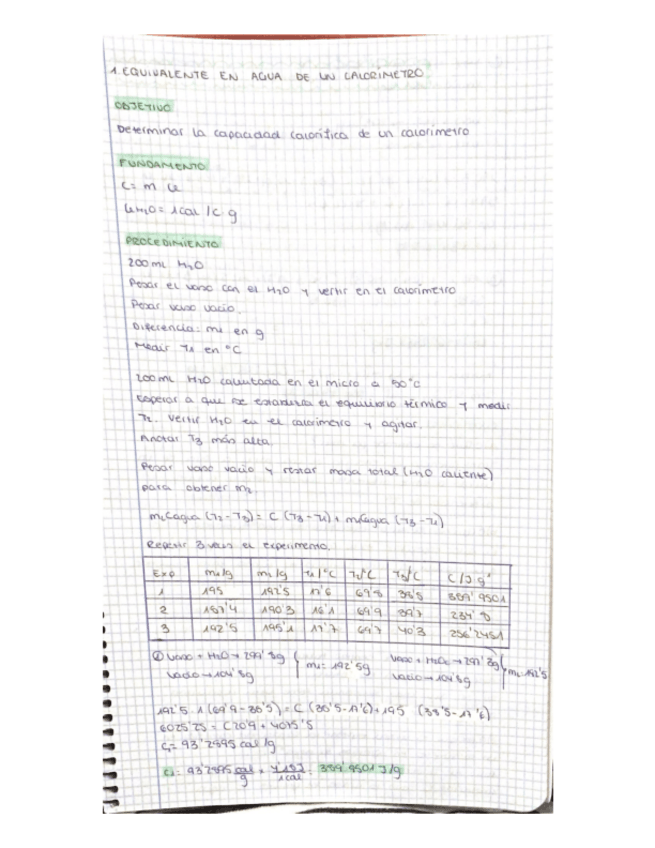 1. EQUIVALENTE EN AGUA DE UN CALORÍMETRO
OBJETIVO
Determinar la capacidad calorífica de un calorímetro
FUNDAMENTO
C = m Ce
CeH2O = 1cal /c g
PROCEDIMIENTO
200 mL H2O
Pesar el vaso con el H2O y vertir en el calorímetro
Pesar vaso vacío.
Diferencia: m1 en g
Medir T1 en °C
200 mL H2O calentada en el micro a 50°C
Esperar a que se establezca el equilibrio térmico y medir
T2. Vertir H2O en el calorímetro y agitar.
Anotar T3 más alta.
Pesar vaso vacío y restar masa total (H2O caliente)
para obtener m2.
m2Cagua (T2-T3) = C (T3-T1) + m1Cagua (T3-T1)
Repetir 3 veces el experimento.
Exp m1/g m2/g T1/°C T2/°C T3/°C C/J g
1 195 192'5 17'6 69'8 38'5 389'9501
2 157'4 190'3 16'1 69'9 39'7 234'8
3 192'5 195'1 17'7 69'7 40'3 256'2451
vaso + H2O → 297'3g m2 = 192'5g
vacío → 104'8g
192'5 · 1 (69'8 - 38'5) = C (38'5 - 17'6) + 195 (38'5 - 17'6)
6025'25 = C 20'9 + 4075'5
C1 = 93'2895 cal /g
C1 = 93'2895 cal/g × 4'18J/1cal = 389'9501 J/g